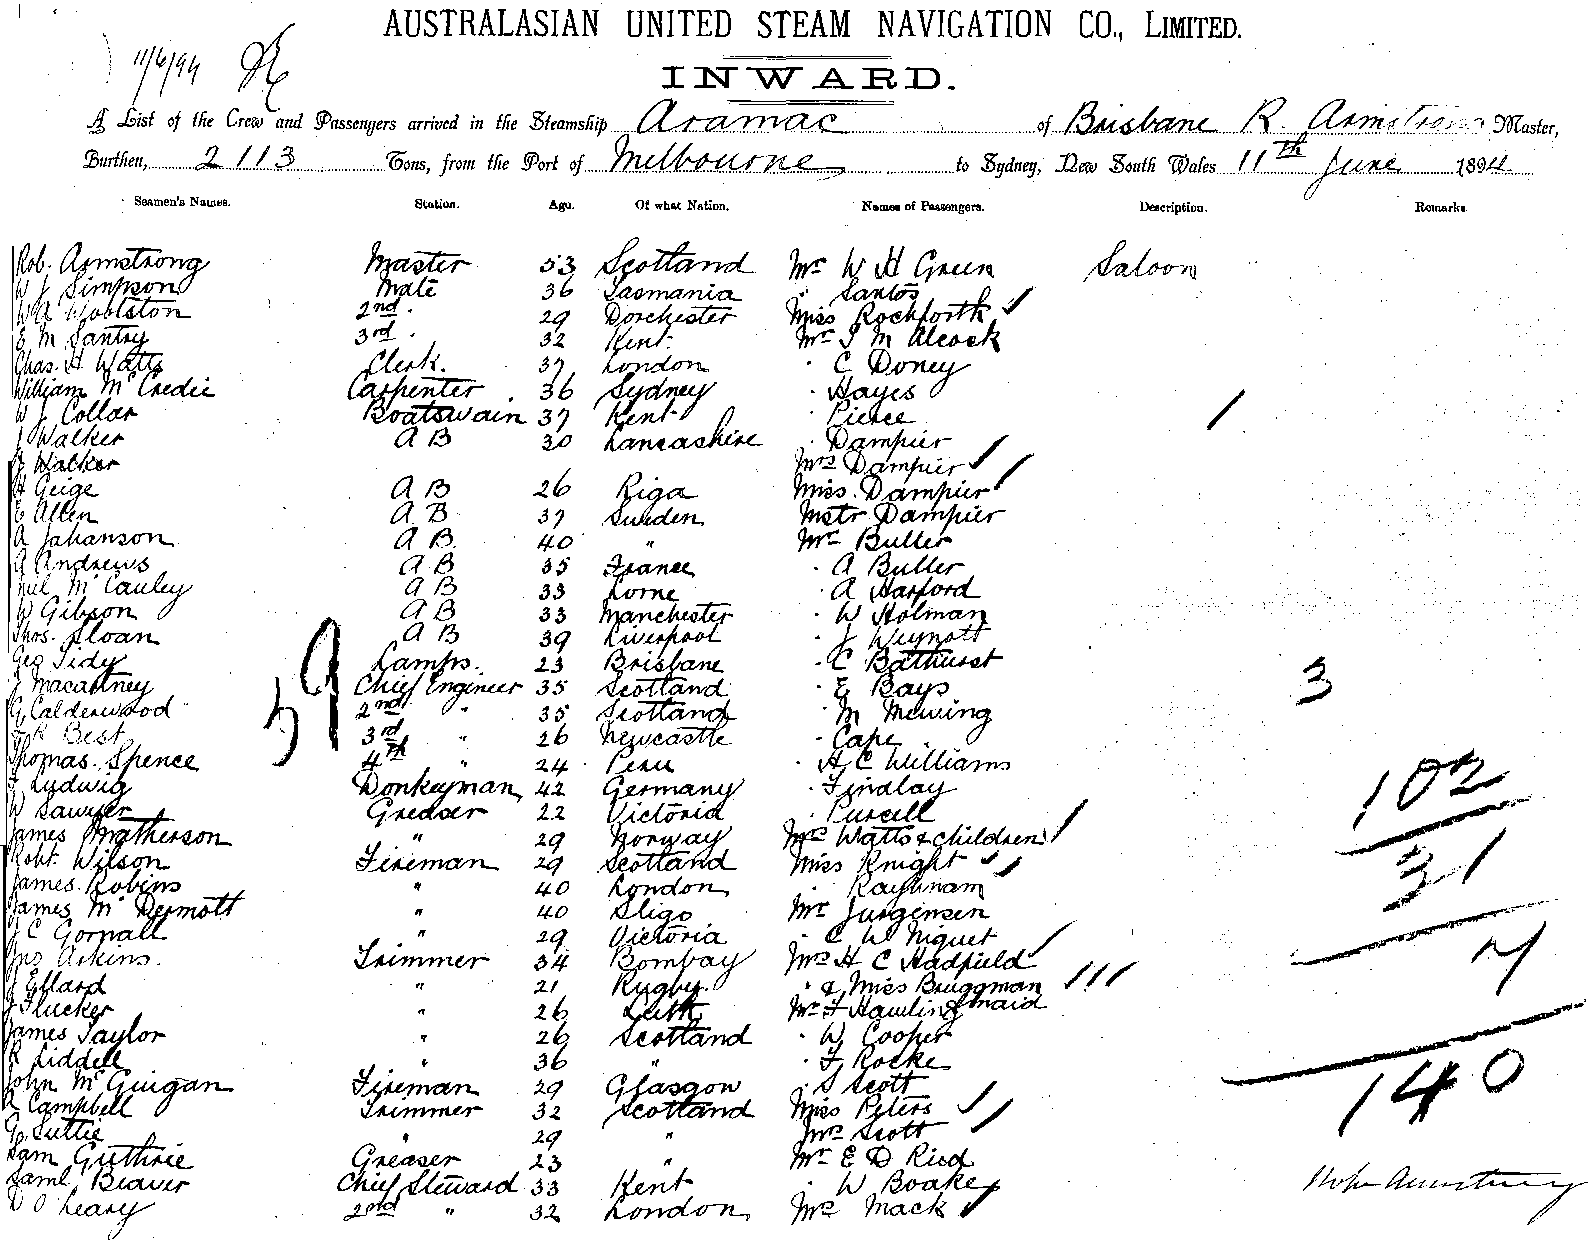 AUSTRALASIAN UNITED STEAM NAVIGATION CO., LIMITED.
11/6/94
INWARD.
A List of the Crew and Passengers arrived in the Steamship Aramac of Brisbane R. Armstrong Master,
Burthen, 2113 Tons, from the Port of Melbourne to Sydney, New South Wales 11th June 1894
Seamen's Names. Station. Age. Of what Nation. Names of Passengers. Description. Remarks.
Rob. Armstrong Master 53 Scotland Mr W H Green Saloon
W J Simpson Mate 36 Tasmania " Santos
W A Wobbston 2nd " 29 Dorchester Miss Rochforth
E M Santry 3rd " 32 Kent Mr T M Alcock
Chas. H Watts Clerk. 37 London " C Doney
William McCredie Carpenter 36 Sydney " Hayes
W J Collar Boatswain 37 Kent " Pierce
J Walker A B 30 Lancashire " Dampier
J Walker Mrs Dampier
H Geige A B 26 Riga Miss. Dampier
E Allen A B 37 Sweden Mstr Dampier
A Johanson A B 40 " Mr Buller
A Andrews A B 35 France " A Buller
Neil McCauley A B 33 Lorne " A Harford
W Gibson A B 33 Manchester " W Holman
Thos. Sloan A B 39 Liverpool " J Weynott
Geo Tidy Lamps. 23 Brisbane " C Bathurst
J Macartney Chief Engineer 35 Scotland " E Bays 3
G Calderwood 2nd " 35 Scotland " M Mewing
59
Best 3rd " 26 Newcastle " Cape
Thomas. Spence 4th " 24 Peru " H C Williams
F Ludwig Donkeyman 42 Germany " Findlay 102
W Sawyer Greaser 22 Victoria " Purcell
James Matherson " 29 Norway Mrs Watts & children
Robt. Wilson Fireman 29 Scotland Miss Knight 31
James. Robins " 40 London " Rayhnam
James McDermott " 40 Sligo Mr Jurgensen
J C Gornall " 29 Victoria " C W Niquet 7
Jno Askins. Trimmer 34 Bombay Mrs H C Hadfield
J Ellard " 21 Rugby. " & Miss Bruggman
J Flucker " 26 Leith Mr F Hamling & maid
James Taylor " 26 Scotland " W Cooper
R Liddell " 36 " " F Rocke
John McGuigan Fireman 29 Glasgow " S Scott 140
A Campbell Trimmer 32 Scotland Miss Peters
G Suttie " 29 " Mrs Scott
Sam Guthrie Greaser 23 " Mr E D Ried
Saml Beaver Chief Steward 33 Kent " W Boake
D O'Leary 2nd " 32 London Mrs Mack
Robt Armstrong